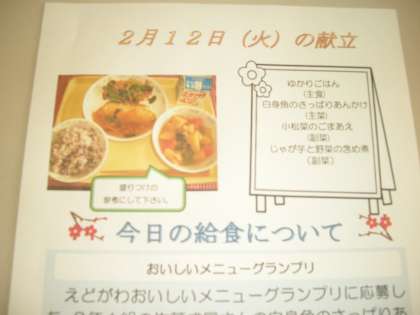 2月12日（火）の献立
ゆかりごはん
(主食)
白身魚のさっぱりあんかけ
(主菜)
小松菜のごまあえ
(副菜)
じゃが芋と野菜の含め煮
(副菜)
盛りつけの
参考にして下さい。
今日の給食について
おいしいメニューグランプリ
えどがわおいしいメニューグランプリに応募し